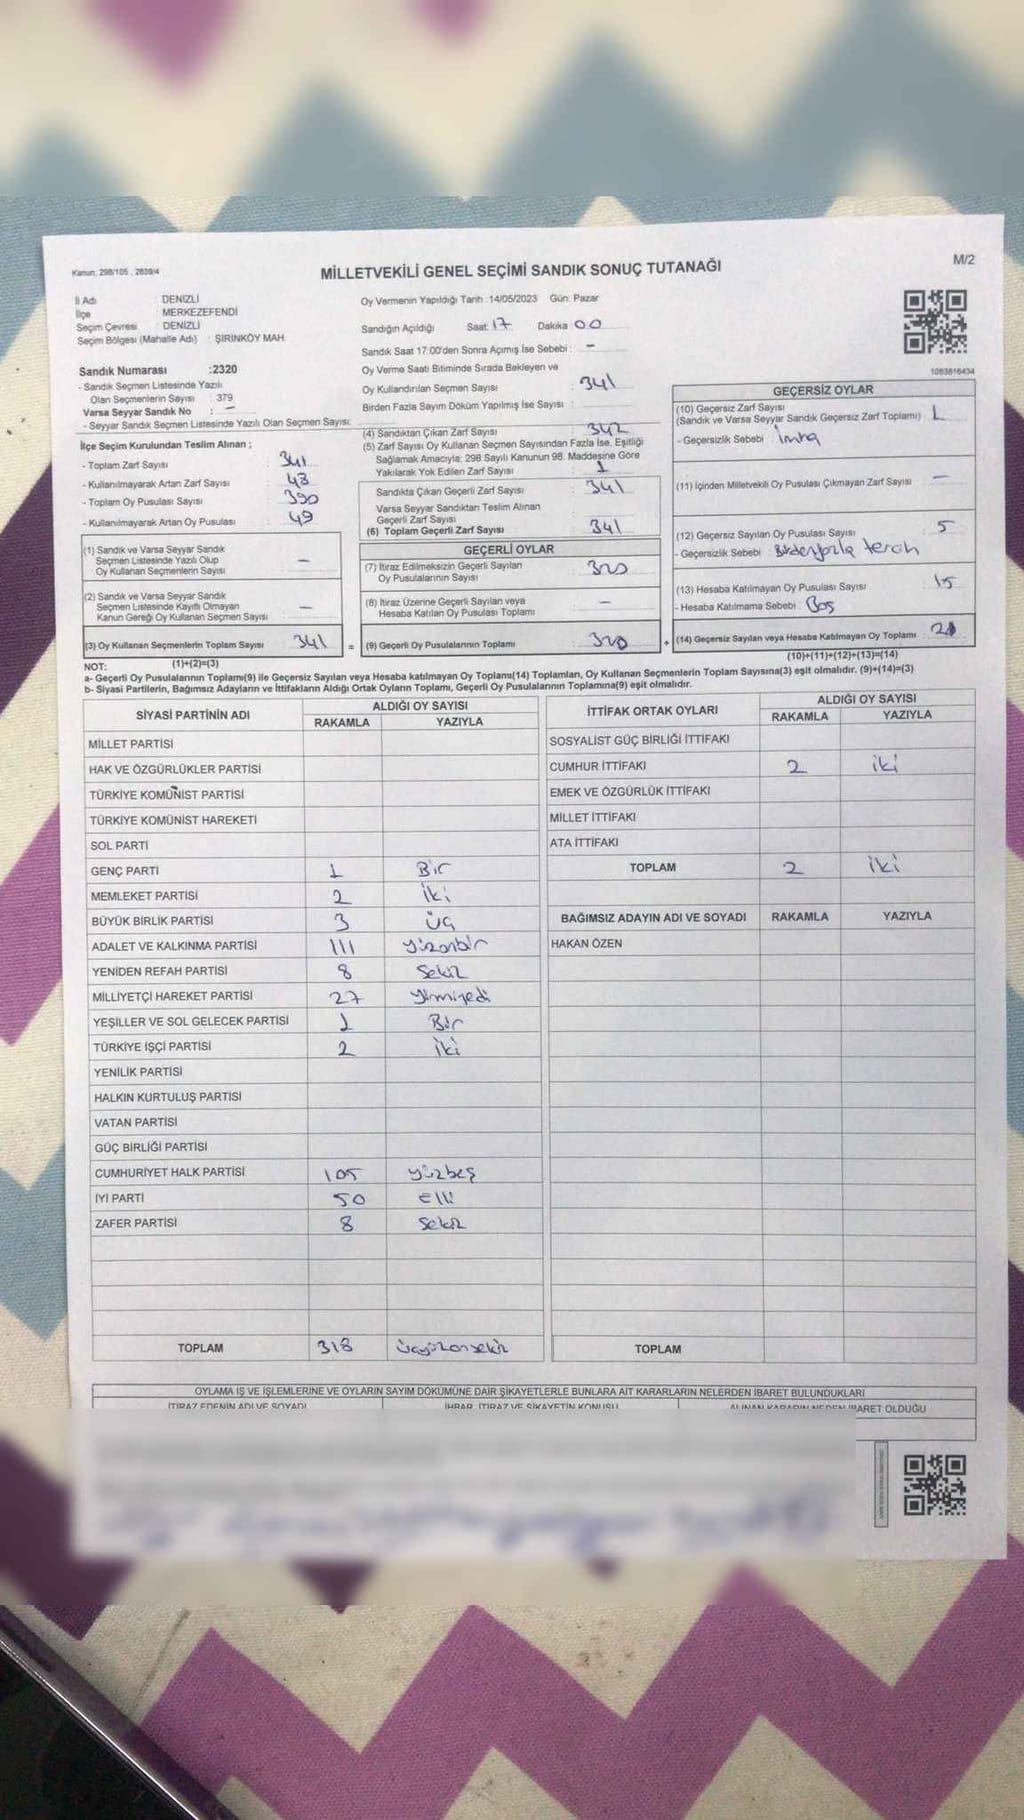 Kanun: 298/105 , 2839/4
MİLLETVEKİLİ GENEL SEÇİMİ SANDIK SONUÇ TUTANAĞI
M/2
İl Adı : DENİZLİ
İlçe : MERKEZEFENDİ
Seçim Çevresi : DENİZLİ
Seçim Bölgesi (Mahalle Adı) : ŞİRİNKÖY MAH.
Sandık Numarası :2320
- Sandık Seçmen Listesinde Yazılı
Olan Seçmenlerin Sayısı : 379
Varsa Seyyar Sandık No : -
- Seyyar Sandık Seçmen Listesinde Yazılı Olan Seçmen Sayısı:
İlçe Seçim Kurulundan Teslim Alınan ;
- Toplam Zarf Sayısı : 341
- Kullanılmayarak Artan Zarf Sayısı : 43
- Toplam Oy Pusulası Sayısı : 390
- Kullanılmayarak Artan Oy Pusulası : 49
(1) Sandık ve Varsa Seyyar Sandık
Seçmen Listesinde Yazılı Olup
Oy Kullanan Seçmenlerin Sayısı : -
(2) Sandık ve Varsa Seyyar Sandık
Seçmen Listesinde Kayıtlı Olmayan
Kanun Gereği Oy Kullanan Seçmen Sayısı : -
(3) Oy Kullanan Seçmenlerin Toplam Sayısı : 341 =
(1)+(2)=(3)
Oy Vermenin Yapıldığı Tarih :14/05/2023 Gün: Pazar
Sandığın Açıldığı Saat: 17 Dakika 00
Sandık Saat 17:00'den Sonra Açımış İse Sebebi : -
Oy Verme Saati Bitiminde Sırada Bekleyen ve
Oy Kullandırılan Seçmen Sayısı : 341
Birden Fazla Sayım Döküm Yapılmış İse Sayısı :
(4) Sandıktan Çıkan Zarf Sayısı : 342
(5) Zarf Sayısı Oy Kullanan Seçmen Sayısından Fazla İse, Eşitliği
Sağlamak Amacıyla; 298 Sayılı Kanunun 98. Maddesine Göre
Yakılarak Yok Edilen Zarf Sayısı : 1
Sandıkta Çıkan Geçerli Zarf Sayısı : 341
Varsa Seyyar Sandıktan Teslim Alınan
Geçerli Zarf Sayısı :
(6) Toplam Geçerli Zarf Sayısı : 341
GEÇERLİ OYLAR
(7) İtiraz Edilmeksizin Geçerli Sayılan
Oy Pusulalarının Sayısı : 320
(8) İtiraz Üzerine Geçerli Sayılan veya
Hesaba Katılan Oy Pusulası Toplamı : -
(9) Geçerli Oy Pusulalarının Toplamı : 320 +
1063816434
GEÇERSİZ OYLAR
(10) Geçersiz Zarf Sayısı
(Sandık ve Varsa Seyyar Sandık Geçersiz Zarf Toplamı) : 1
- Geçersizlik Sebebi : imha
(11) İçinden Milletvekili Oy Pusulası Çıkmayan Zarf Sayısı : -
(12) Geçersiz Sayılan Oy Pusulası Sayısı : 5
- Geçersizlik Sebebi : Birdenfazla tercih
(13) Hesaba Katılmayan Oy Pusulası Sayısı : 15
- Hesaba Katılmama Sebebi : Boş
(14) Geçersiz Sayılan veya Hesaba Katılmayan Oy Toplamı : 21
(10)+(11)+(12)+(13)=(14)
NOT:
a- Geçerli Oy Pusulalarının Toplamı(9) ile Geçersiz Sayılan veya Hesaba katılmayan Oy Toplamı(14) Toplamları, Oy Kullanan Seçmenlerin Toplam Sayısına(3) eşit olmalıdır. (9)+(14)=(3)
b- Siyasi Partilerin, Bağımsız Adayların ve İttifakların Aldığı Ortak Oyların Toplamı, Geçerli Oy Pusulalarının Toplamına(9) eşit olmalıdır.
SİYASİ PARTİNİN ADI ALDIĞI OY SAYISI
RAKAMLA YAZIYLA
MİLLET PARTİSİ
HAK VE ÖZGÜRLÜKLER PARTİSİ
TÜRKİYE KOMÜNİST PARTİSİ
TÜRKİYE KOMÜNİST HAREKETİ
SOL PARTİ
GENÇ PARTİ 1 Bir
MEMLEKET PARTİSİ 2 İki
BÜYÜK BİRLİK PARTİSİ 3 Üç
ADALET VE KALKINMA PARTİSİ 111 Yüzonbir
YENİDEN REFAH PARTİSİ 8 Sekiz
MİLLİYETÇİ HAREKET PARTİSİ 27 Yirmiyedi
YEŞİLLER VE SOL GELECEK PARTİSİ 1 Bir
TÜRKİYE İŞÇİ PARTİSİ 2 İki
YENİLİK PARTİSİ
HALKIN KURTULUŞ PARTİSİ
VATAN PARTİSİ
GÜÇ BİRLİĞİ PARTİSİ
CUMHURİYET HALK PARTİSİ 105 yüzbeş
İYİ PARTİ 50 elli
ZAFER PARTİSİ 8 Sekiz
TOPLAM 318 üçyüzonsekiz
İTTİFAK ORTAK OYLARI ALDIĞI OY SAYISI
RAKAMLA YAZIYLA
SOSYALİST GÜÇ BİRLİĞİ İTTİFAKI
CUMHUR İTTİFAKI 2 iki
EMEK VE ÖZGÜRLÜK İTTİFAKI
MİLLET İTTİFAKI
ATA İTTİFAKI
TOPLAM 2 iki
BAĞIMSIZ ADAYIN ADI VE SOYADI RAKAMLA YAZIYLA
HAKAN ÖZEN
TOPLAM
OYLAMA İŞ VE İŞLEMLERİNE VE OYLARIN SAYIM DÖKÜMÜNE DAİR ŞİKAYETLERLE BUNLARA AİT KARARLARIN NELERDEN İBARET BULUNDUKLARI
İTİRAZ EDENİN ADI VE SOYADI İHBAR, İTİRAZ VE ŞİKAYETİN KONUSU ALINAN KARARIN NEDEN İBARET OLDUĞU